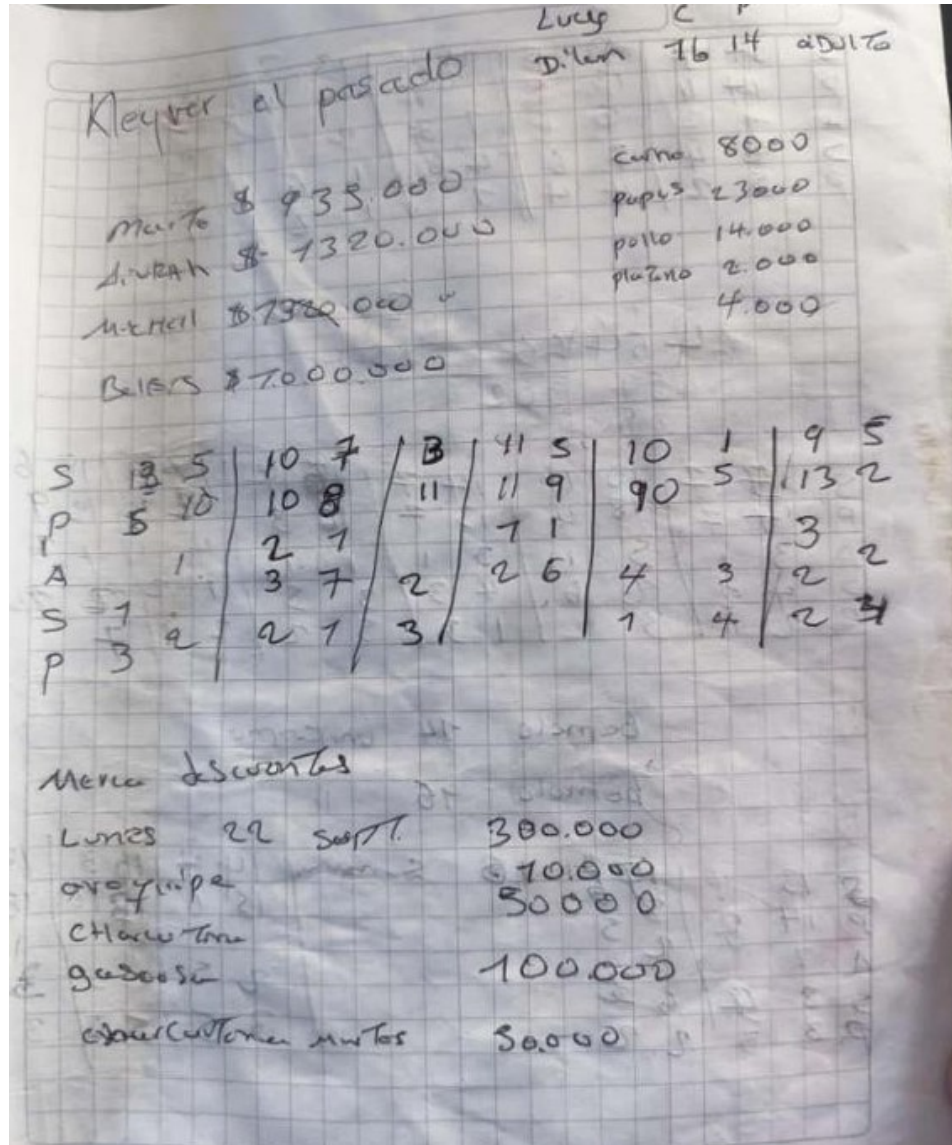 Lucy C P
Dilan 16 14 aDULTO
Kleyver el pasado
$ 935.000
$ 1320.000
$ 000
$ 1.000.000
carne 8000
papas 23000
pollo 14.000
platano 2.000
4.000
S 13 5 | 10 7 | 13 | 11 5 | 10 1 | 9 5
P 5 10 | 10 8 | 11 | 11 9 | 90 5 | 13 2
A 1 2 1 1 1 3
S 1 3 7 2 2 6 4 3 2 2
P 3 2 2 1 3 1 4 2
Merca descuentos
Lunes 22 Sept. 300.000
arequipe 10.000
50000
gaseosa 100.000
50.000